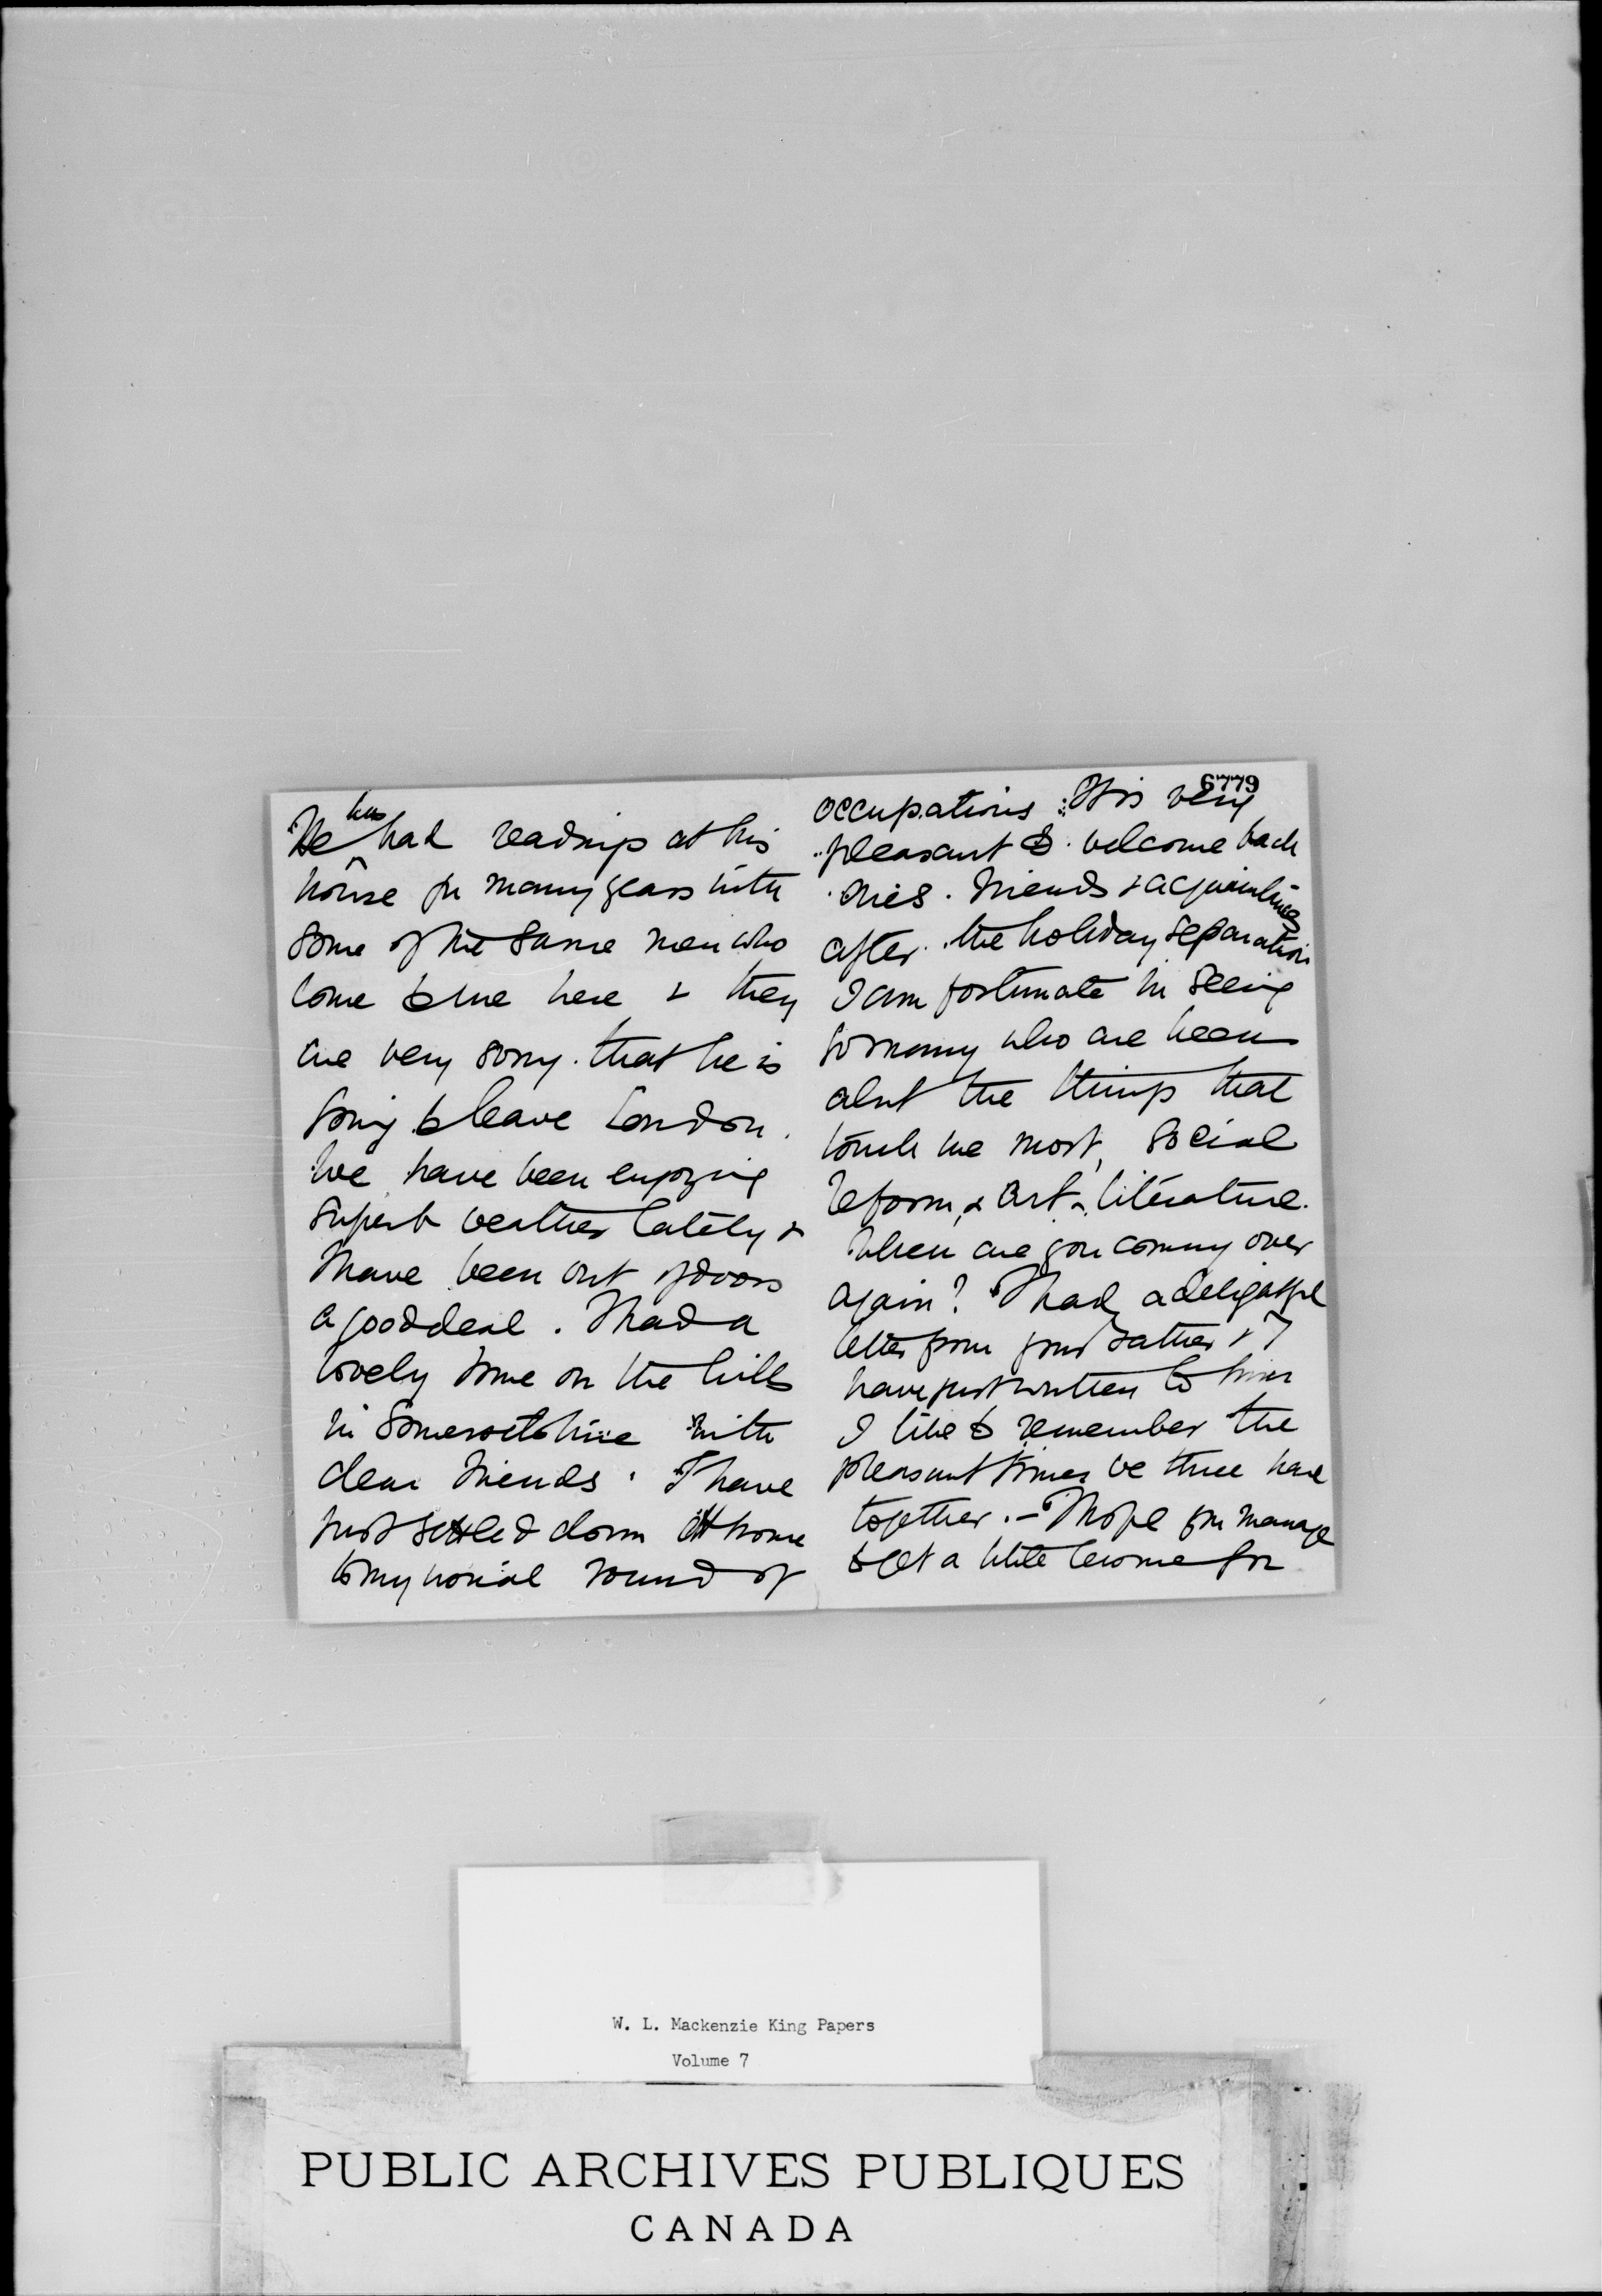 He has had readings at his
house for many years with
some of the same men who
come to me here & they
are very sorry that he is
going to leave London.
We have been enjoying
superb weather lately &
I have been out of doors
a good deal. I had a
lovely time on the hills
in Somersetshire with
dear friends. I have
just settled down at home
to my usual round of
6779
occupations. It is very
pleasant to welcome back
one's friends & acquaintances
after the holiday separation
I am fortunate in seeing
so many who are keen
about the things that
touch me most, social
reform, & art & literature.
When are you coming over
again? I had a delightful
letter from your father & I
have just written to him
I like to remember the
pleasant times we three have
together. – I hope you manage
to get a little leisure for
W. L. Mackenzie King Papers
Volume 7
PUBLIC ARCHIVES PUBLIQUES
CANADA